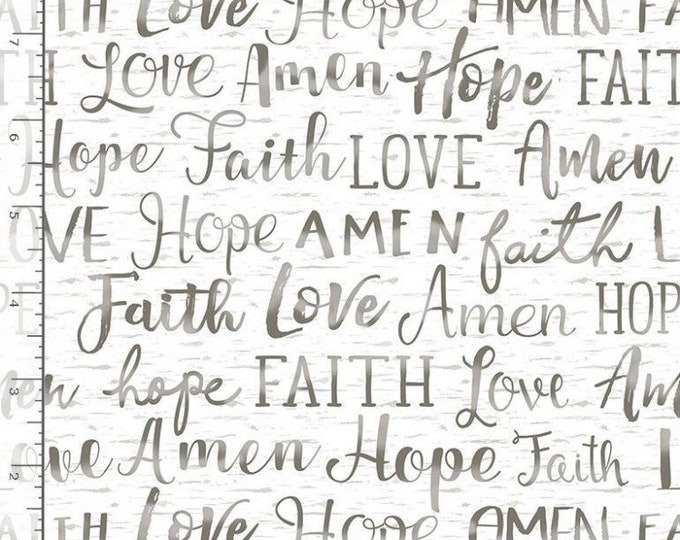 FAITH Love Hope AMEN FA
TH Love Amen Hope FAIT
Hope Faith LOVE Amen
OVE Hope AMEN faith L
OPE Faith Love Amen HOP
men hope FAITH Love Ame
ove Amen Hope Faith L
FAITH Love Hope AMEN FA
7
6
5
4
3
2